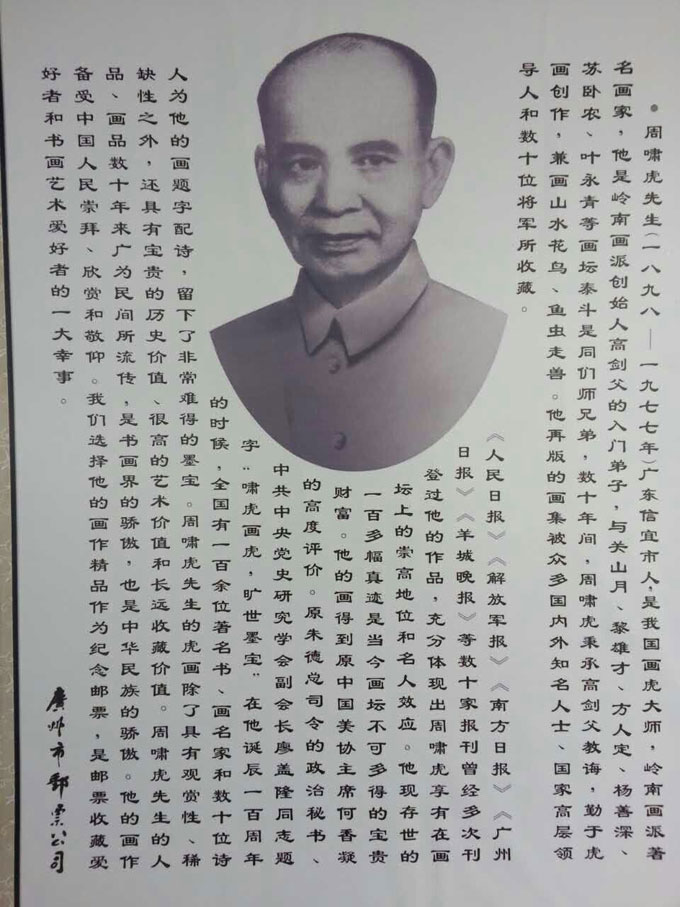 ●周啸虎先生(一八九八——一九七七年)广东信宜市人，是我国画虎大师，岭南画派著
名画家，他是岭南画派创始人高剑父的入门弟子，与关山月、黎雄才、方人定、杨善深、
苏卧农、叶永青等画坛泰斗是同们师兄弟，数十年间，周啸虎秉承高剑父教诲，勤于虎
画创作，兼画山水花鸟、鱼虫走善。他再版的画集被众多国内外知名人士、国家高层领
导人和数十位将军所收藏。
《人民日报》《解放军报》《南方日报》《广州
日报》《羊城晚报》等数十家报刊曾经多次刊
登过他的作品，充分体现出周啸虎享有在画
坛上的崇高地位和名人效应。他现存世的
一百多幅真迹是当今画坛不可多得的宝贵
财富。他的画得到原中国美协主席何香凝
的高度评价。原朱德总司令的政治秘书、
中共中央党史研究学会副会长廖盖隆同志题
字“啸虎画虎，旷世墨宝”在他诞辰一百周年
的时候，全国有一百余位著名书、画名家和数十位诗
人为他的画题字配诗，留下了非常难得的墨宝。周啸虎先生的虎画除了具有观赏性、稀
缺性之外，还具有宝贵的历史价值、很高的艺术价值和长远收藏价值。周啸虎先生的人
品、画品数十年来广为民间所流传，是书画界的骄傲，也是中华民族的骄傲。他的画作
备受中国人民崇拜、欣赏和敬仰。我们选择他的画作精品作为纪念邮票，是邮票收藏爱
好者和书画艺术爱好者的一大幸事。
廣州市郵票公司